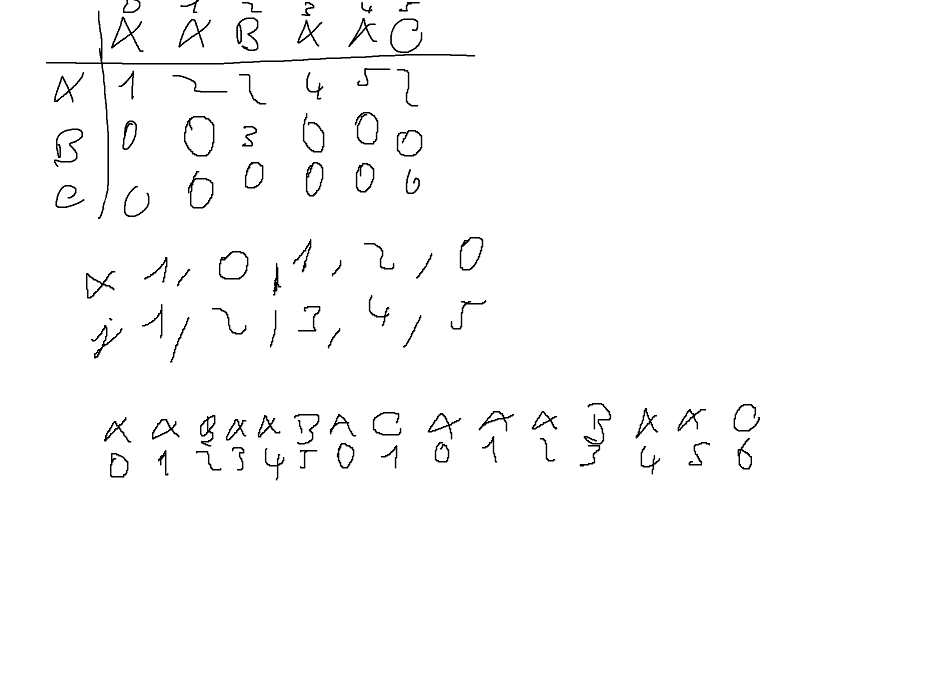 0 1 2 3 4 5
A A B A A C
A 1 2 2 4 5 2
B 0 0 3 0 0 0
C 0 0 0 0 0 6
X 1, 0, 1, 2, 0
j 1, 2, 3, 4, 5
A A B A A B A C A A A B A A C
0 1 2 3 4 5 0 1 0 1 2 3 4 5 6